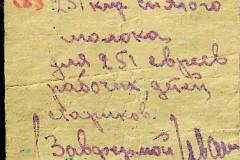 251 кгр снятого
молока
для 251 евреев
рабочих, детей,
стариков.
Завфермой